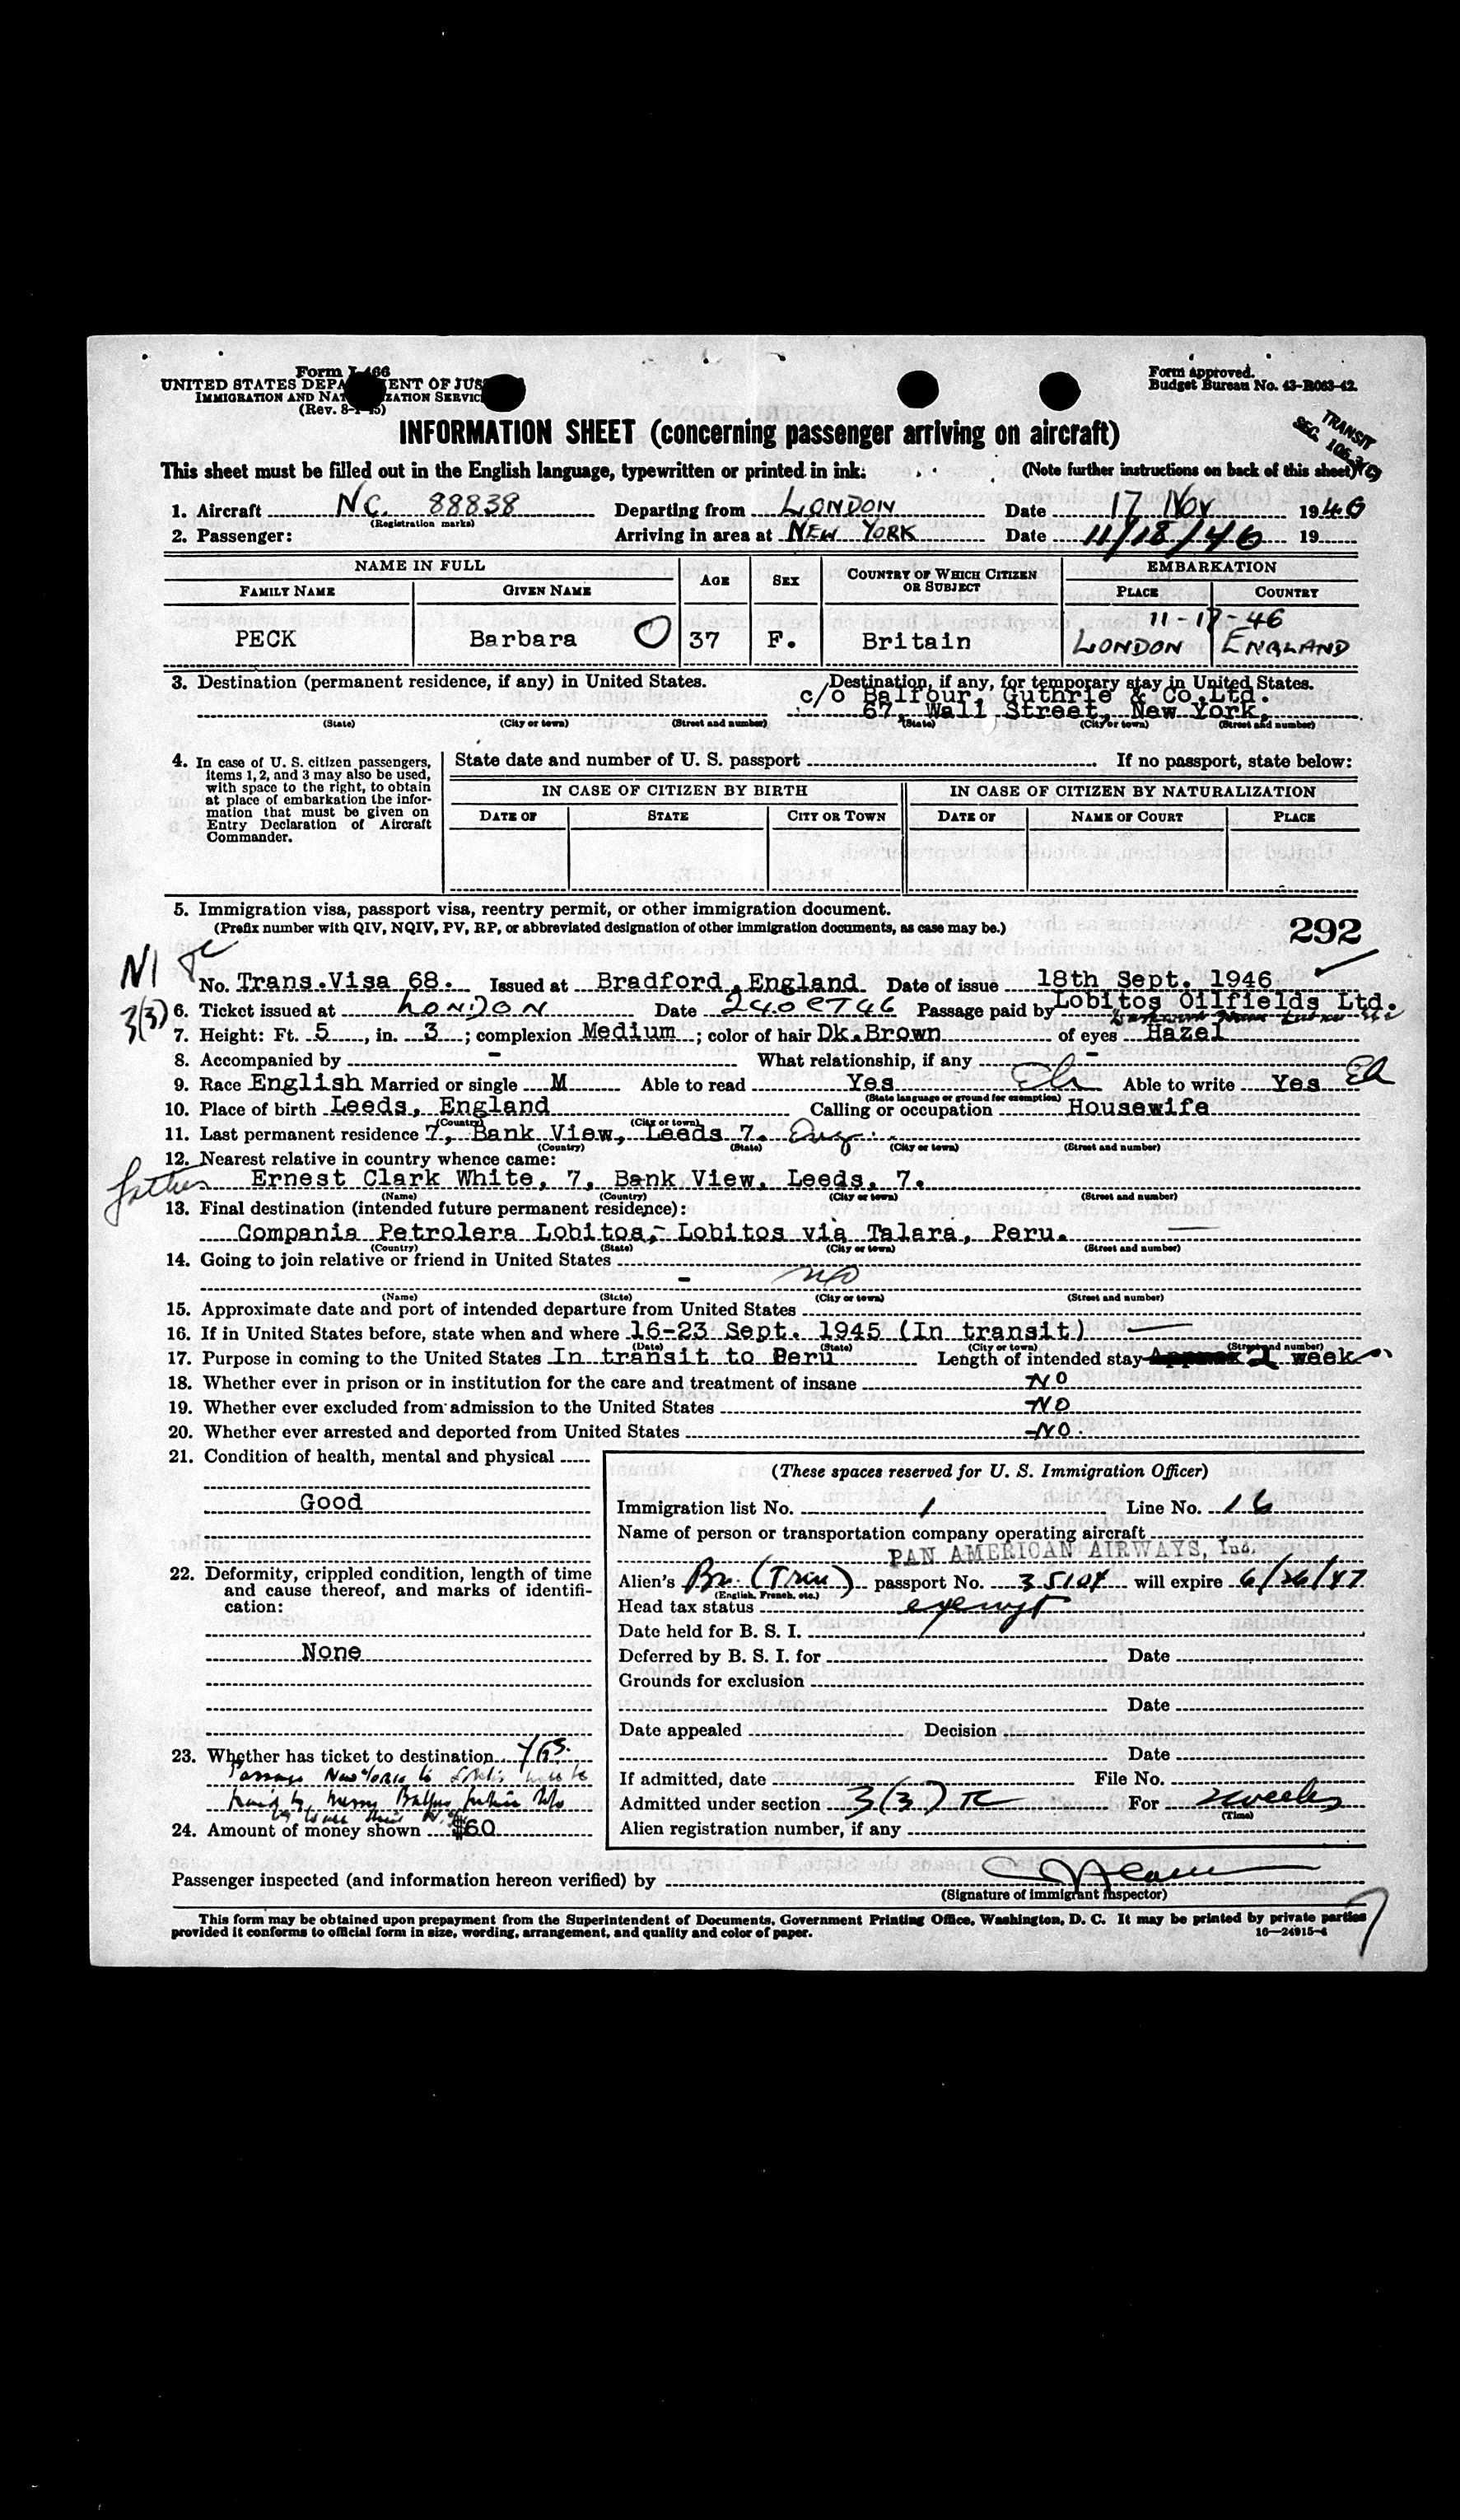 Form I-466
UNITED STATES DEPARTMENT OF JUSTICE
IMMIGRATION AND NATURALIZATION SERVICE
(Rev. 8-1-45)
Form approved.
Budget Bureau No. 43-R063-42.
TRANSIT
SEC. 105.3(C)
INFORMATION SHEET (concerning passenger arriving on aircraft)
This sheet must be filled out in the English language, typewritten or printed in ink.
(Note further instructions on back of this sheet)
1. Aircraft NC. 88838 Departing from LONDON Date 17 Nov 1946
(Registration marks)
2. Passenger: Arriving in area at NEW YORK Date 11/18/46 19
NAME IN FULL AGE SEX COUNTRY OF WHICH CITIZEN OR SUBJECT EMBARKATION
FAMILY NAME GIVEN NAME PLACE COUNTRY
11-17-46
PECK Barbara 37 F. Britain LONDON ENGLAND
3. Destination (permanent residence, if any) in United States. Destination, if any, for temporary stay in United States.
c/o Balfour, Guthrie & Co.Ltd.
67, Wall Street, New York,
(State) (City or town) (Street and number) (State) (City or town) (Street and number)
4. In case of U. S. citizen passengers, items 1, 2, and 3 may also be used, with space to the right, to obtain at place of embarkation the information that must be given on Entry Declaration of Aircraft Commander.
State date and number of U. S. passport If no passport, state below:
IN CASE OF CITIZEN BY BIRTH IN CASE OF CITIZEN BY NATURALIZATION
DATE OF STATE CITY OR TOWN DATE OF NAME OF COURT PLACE
5. Immigration visa, passport visa, reentry permit, or other immigration document.
(Prefix number with QIV, NQIV, PV, RP, or abbreviated designation of other immigration documents, as case may be.)
292
N1
No. Trans.Visa 68. Issued at Bradford, England Date of issue 18th Sept. 1946
3(3)
6. Ticket issued at LONDON Date 24 OCT 46 Passage paid by Lobitos Oilfields Ltd.
7. Height: Ft. 5, in. 3; complexion Medium; color of hair Dk.Brown of eyes Hazel
8. Accompanied by - What relationship, if any -
9. Race English Married or single M Able to read Yes Able to write Yes
(State language or ground for exemption)
10. Place of birth Leeds, England Calling or occupation Housewife
(Country) (City or town)
11. Last permanent residence 7, Bank View, Leeds 7. Eng.
(Country) (State) (City or town) (Street and number)
12. Nearest relative in country whence came:
father Ernest Clark White, 7, Bank View, Leeds, 7.
(Name) (Country) (City or town) (Street and number)
13. Final destination (intended future permanent residence):
Compania Petrolera Lobitos,- Lobitos via Talara, Peru.
(Country) (State) (City or town) (Street and number)
14. Going to join relative or friend in United States
- no
(Name) (State) (City or town) (Street and number)
15. Approximate date and port of intended departure from United States
16. If in United States before, state when and where 16-23 Sept. 1945 (In transit)
(Date) (State) (City or town) (Street and number)
17. Purpose in coming to the United States In transit to Peru Length of intended stay Approx 2 week
18. Whether ever in prison or in institution for the care and treatment of insane NO
19. Whether ever excluded from admission to the United States NO
20. Whether ever arrested and deported from United States NO.
21. Condition of health, mental and physical
Good
22. Deformity, crippled condition, length of time and cause thereof, and marks of identification:
None
23. Whether has ticket to destination YES.
Passage New York to
paid by
24. Amount of money shown $60
(These spaces reserved for U. S. Immigration Officer)
Immigration list No. 1 Line No. 16
Name of person or transportation company operating aircraft
PAN AMERICAN AIRWAYS, Inc.
Alien's Br. passport No. 35104 will expire 6/26/47
(English, French, etc.)
Head tax status exempt
Date held for B. S. I.
Deferred by B. S. I. for Date
Grounds for exclusion
Date
Date appealed Decision
Date
If admitted, date File No.
Admitted under section 3(3) TC For 2 weeks
(Time)
Alien registration number, if any
Passenger inspected (and information hereon verified) by
(Signature of immigrant inspector)
This form may be obtained upon prepayment from the Superintendent of Documents, Government Printing Office, Washington, D. C. It may be printed by private parties
provided it conforms to official form in size, wording, arrangement, and quality and color of paper. 16—24915-4